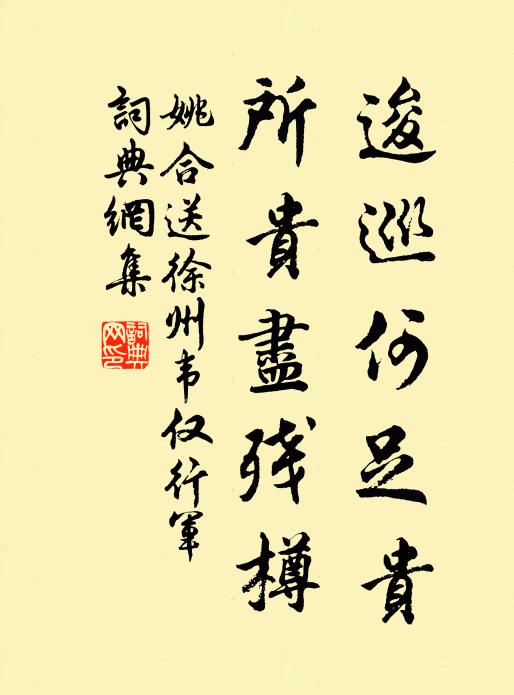 逡巡何足貴
所貴盡残樽
姚合送徐州韦仅行軍
詞典網集
詞典网印